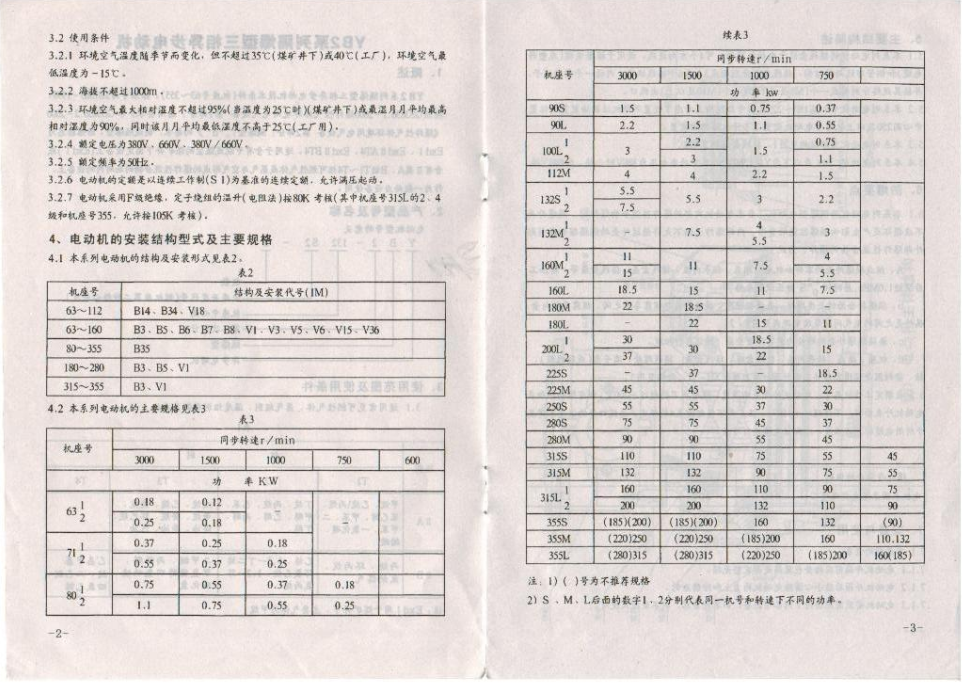 3.2 使用条件
3.2.1 环境空气温度随季节而变化，但不超过35℃(煤矿井下)或40℃(工厂)，环境空气最
低温度为-15℃。
3.2.2 海拔不超过1000m。
3.2.3 环境空气最大相对湿度不超过95%(当温度为25℃时)(煤矿井下)或最湿月月平均最高
相对湿度为90%，同时该月月平均最低温度不高于25℃(工厂用)。
3.2.4 额定电压为380V、660V、380V/660V。
3.2.5 额定频率为50Hz。
3.2.6 电动机的定额是以连续工作制(S1)为基准的连续定额，允许满压起动。
3.2.7 电动机采用F级绝缘，定子绕组的温升(电阻法)按80K 考核(其中机座号315L的2、4
级和机座号355，允许按105K 考核)。
4、电动机的安装结构型式及主要规格
4.1 本系列电动机的结构及安装形式见表2。
表2
机座号 结构及安装代号(IM)
63～112 B14、B34、V18
63～160 B3、B5、B6、B7、B8、V1、V3、V5、V6、V15、V36
80～355 B35
180～280 B3、B5、V1
315～355 B3、V1
4.2 本系列电动机的主要规格见表3
表3
机座号 同步转速r/min
3000 1500 1000 750 600
功 率 KW
63 1 0.18 0.12
2 0.25 0.18 -
71 1 0.37 0.25 0.18
2 0.55 0.37 0.25
80 1 0.75 0.55 0.37 0.18
2 1.1 0.75 0.55 0.25
-2-
续表3
机座号 同步转速r/min
3000 1500 1000 750
功 率 kw
90S 1.5 1.1 0.75 0.37
90L 2.2 1.5 1.1 0.55
100L 1 3 2.2 1.5 0.75
2 3 1.1
112M 4 4 2.2 1.5
132S 1 5.5 5.5 3 2.2
2 7.5
132M 1 - 7.5 4 3
2 5.5
160M 1 11 11 7.5 4
2 15 5.5
160L 18.5 15 11 7.5
180M 22 18.5 -
180L - 22 15 11
200L 1 30 30 18.5 15
2 37 22
225S - 37 - 18.5
225M 45 45 30 22
250S 55 55 37 30
280S 75 75 45 37
280M 90 90 55 45
315S 110 110 75 55 45
315M 132 132 90 75 55
315L 1 160 160 110 90 75
2 200 200 132 110 90
355S (185)(200) (185)(200) 160 132 (90)
355M (220)250 (220)250 (185)200 160 110.132
355L (280)315 (280)315 (220)250 (185)200 160(185)
注：1) ( )号为不推荐规格
2) S 、M、L后面的数字1、2分别代表同一机号和转速下不同的功率。
-3-